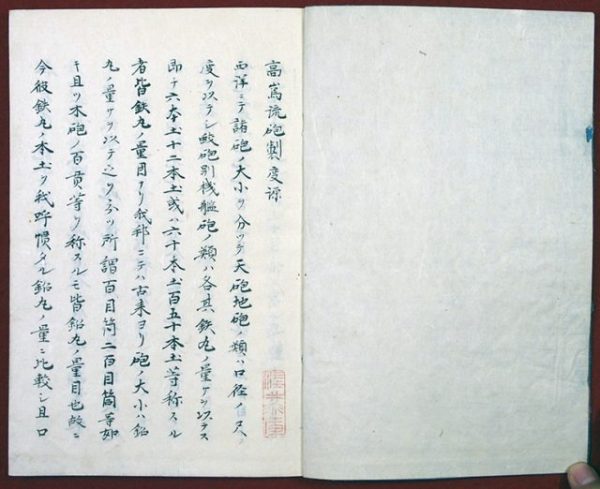 高嶌流砲製度源
西洋ニテ諸砲ノ大小ヲ分ツヤ天砲地砲ノ類ハ口径ノ尺
度ヲ以テシ砲別機艦砲ノ類ハ各其鉄丸ノ量ヲ以テス
即チ六本土十二本土或ハ六十本土百五十本土等称スル
者皆鉄丸ノ量目ナリ我邦ニテハ古来ヨリ砲ノ大小ハ鉛
丸ノ量ヲ以テ之ヲ分ツ所謂百目筒二百目筒等如
キ且ツ木砲ノ百貫等ヲ称スルモ皆鉛丸ノ量目也故ニ
今彼鉄丸ノ本土ヲ我呼慣タル鉛丸ノ量ニ比較シ且口